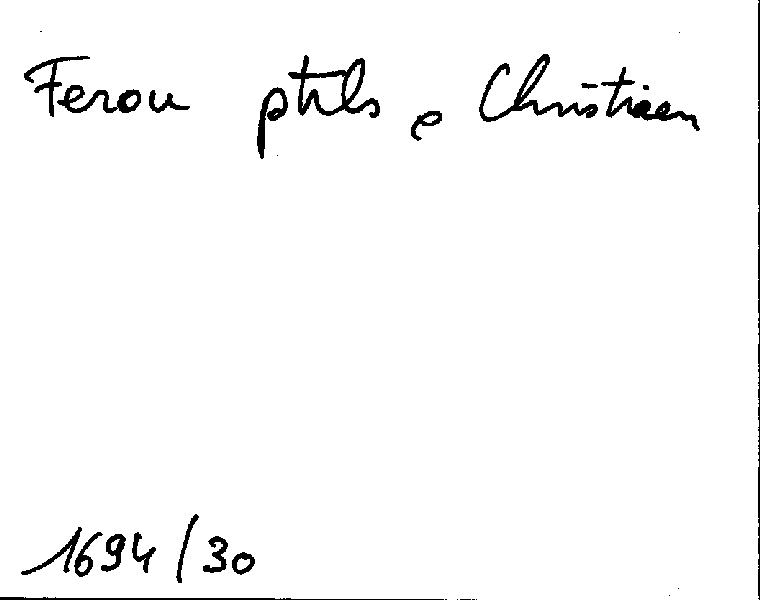 Ferou ptils e Christiaen
1694/30